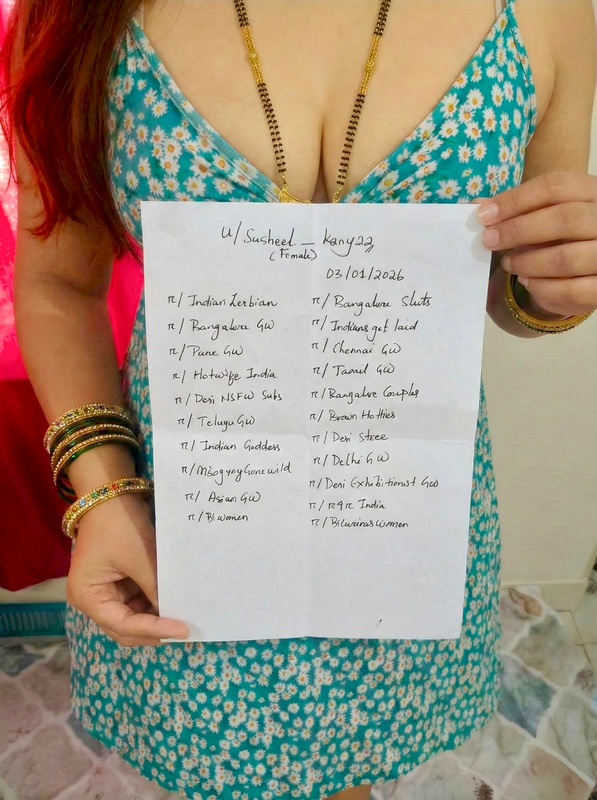 u/Susheel_Kany22
(Female)
03/01/2026
r/ Indian Lesbian
r/ Bangalore GW
r/ Pune GW
r/ Hotwife India
r/ Desi NSFW Subs
r/ Telugu GW
r/ Indian Goddess
r/ Misogynygonewild
r/ Asian GW
r/ Bi women
r/ Bangalore Sluts
r/ Indians get laid
r/ Chennai GW
r/ Tamil GW
r/ Bangalore Couples
r/ Brown Hotties
r/ Desi Stree
r/ Delhi GW
r/ Desi Exhibitionist GW
r/ r4r India